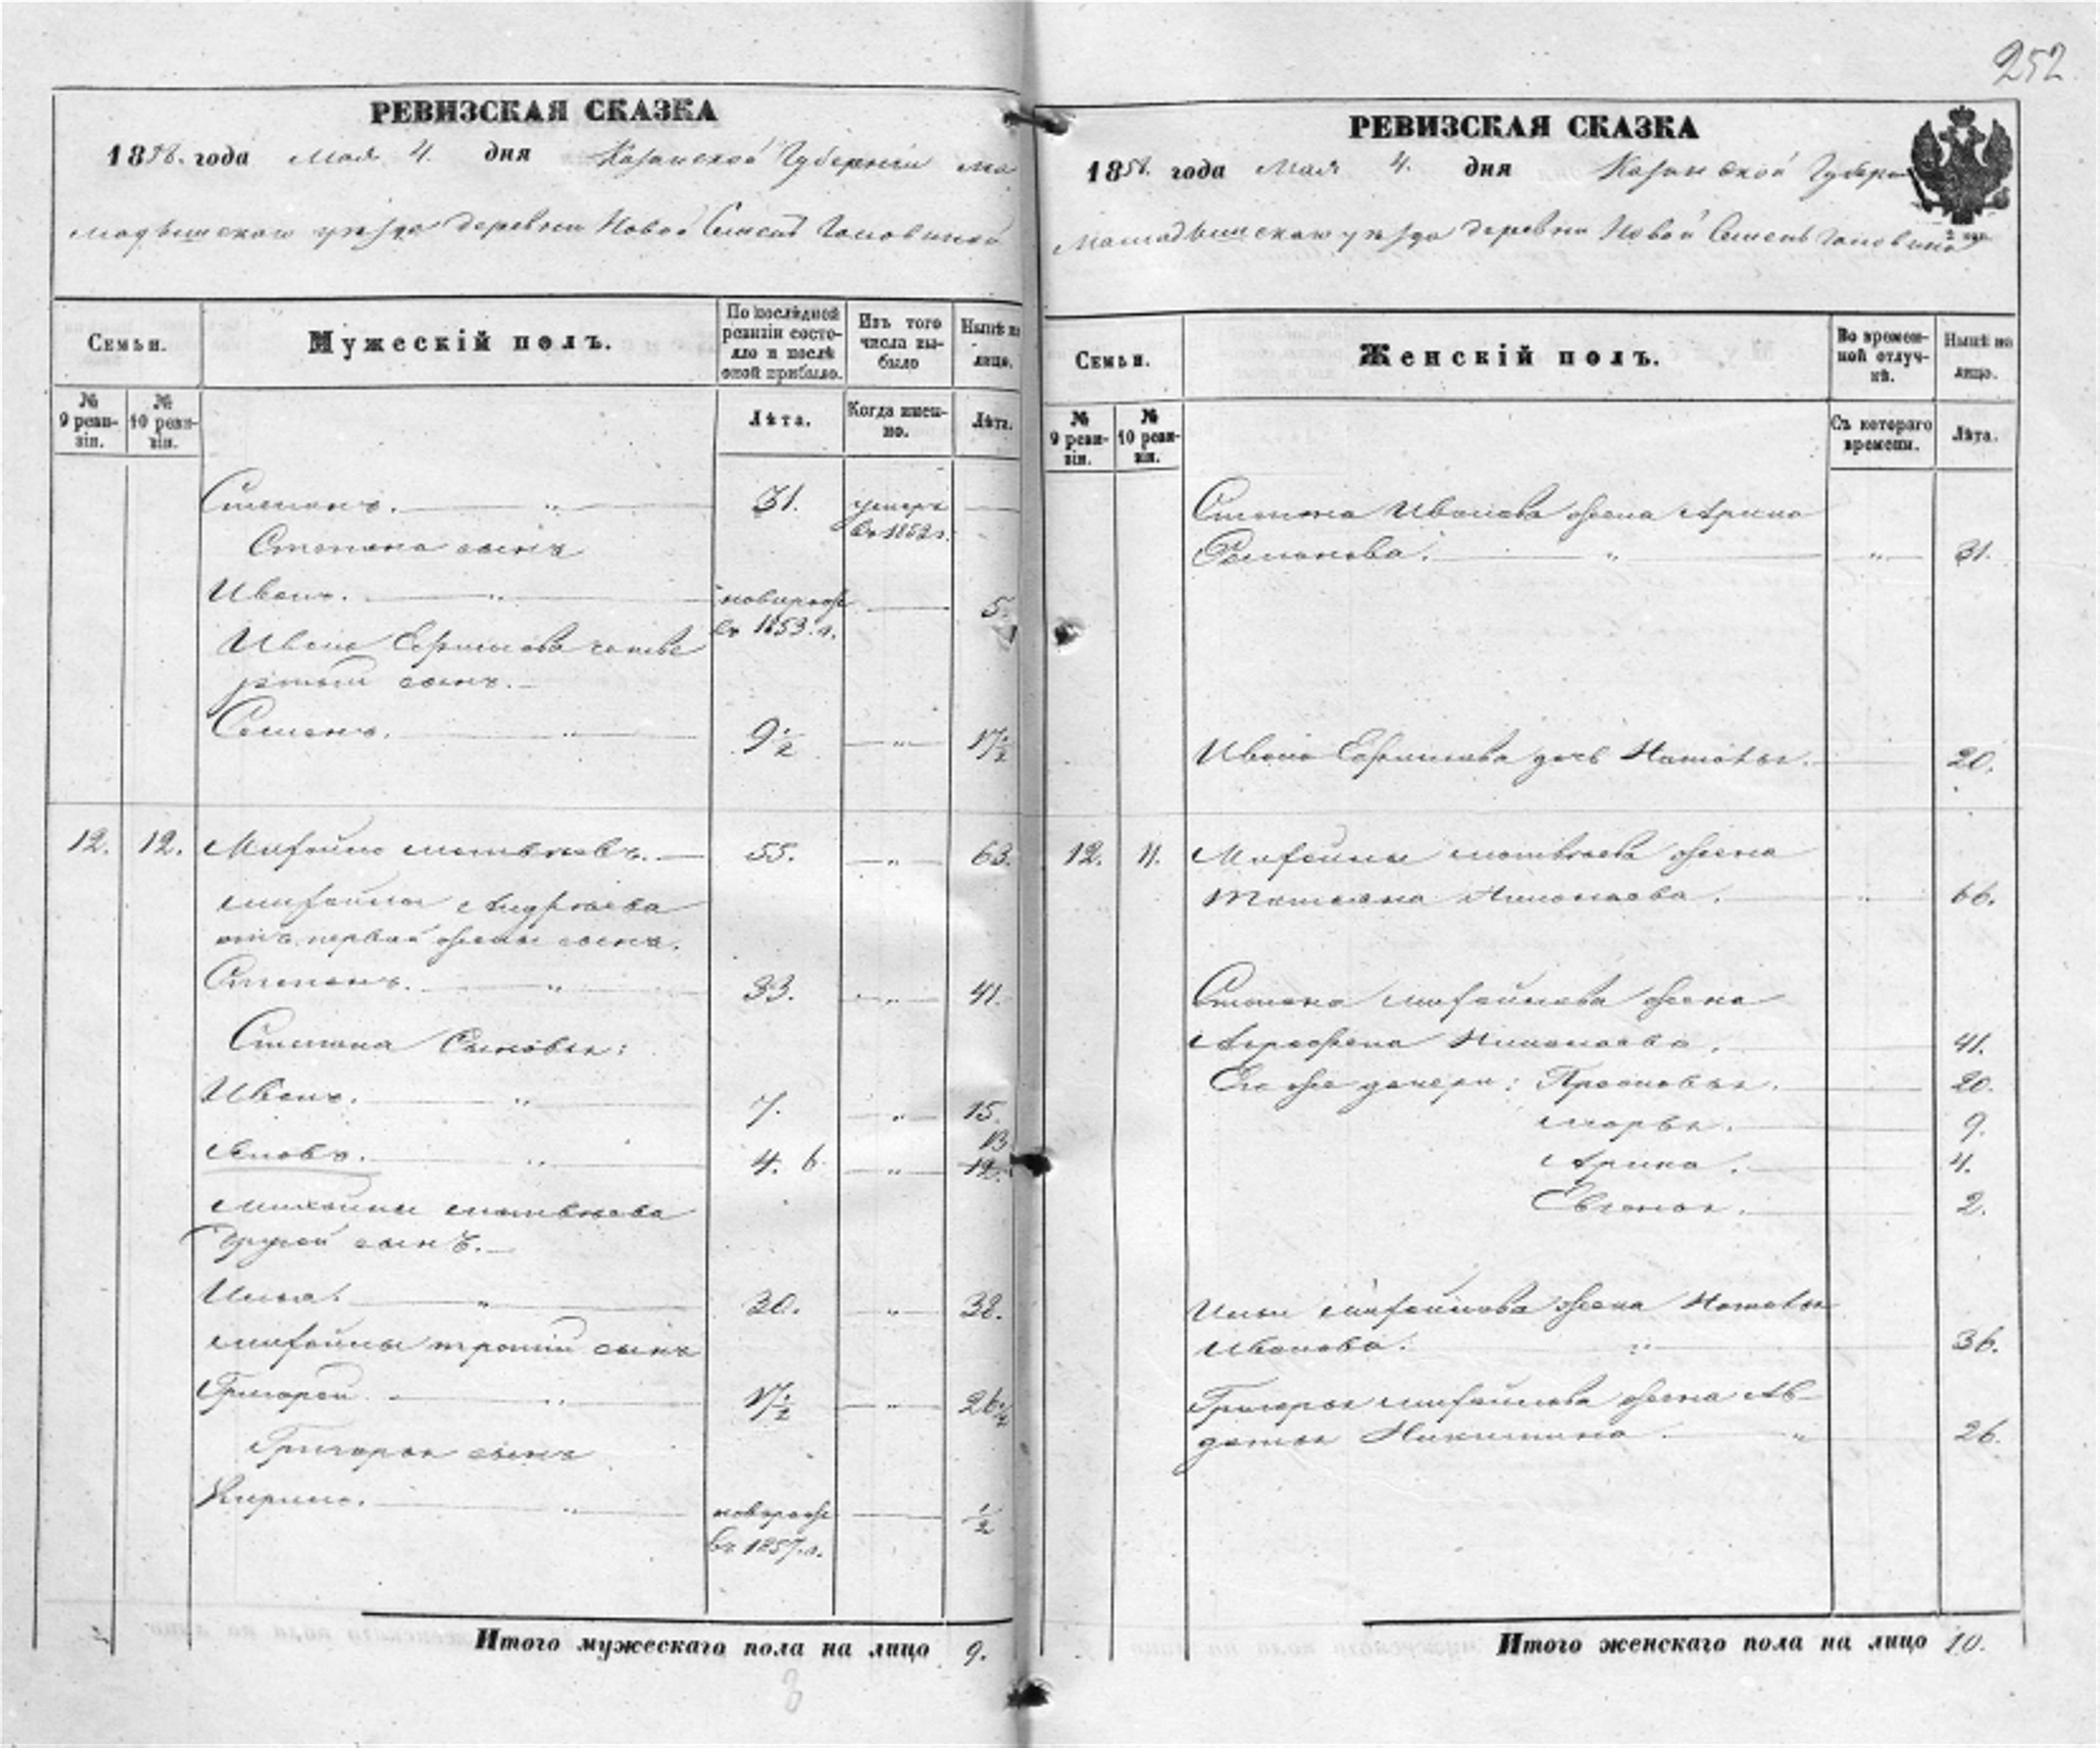 252
РЕВИЗСКАЯ СКАЗКА
1858. года Мая 4. дня Казанской Губернии Ма
мадышскаго уезда деревни Новой
Семьи.
Мужескій полъ.
По послѣдней ревизіи состояло и послѣ оной прибыло.
Изъ того числа выбыло
Нынѣ на лицо.
№ 9 ревизіи.
№ 10 ревизіи.
Лѣта.
Когда именно.
Лѣта.
Степанъ. 31. умеръ въ 1852 г.
Степана сынъ
Иванъ. новорож въ 1853. г. 5.
Ивана Ефимова четве
ртый сынъ.
Семенъ. 9 1/2 17 1/2
12. 12. Михайло Матвѣевъ. 55. 63.
Михайлы
отъ первой жены сынъ.
Степанъ. 33. 41.
Степана Сыновья:
Иванъ. 7. 15.
Яковъ. 4. 6 13 12.
Михайлы Матвѣева
другой сынъ.
Илья. 30. 38.
Михайлы третій сынъ
Григорей 17 1/2
Григорья сынъ
Кирило. новорож въ 1857. г. 1/2
Итого мужескаго пола на лицо 9.
8
РЕВИЗСКАЯ СКАЗКА
1858. года Мая 4. дня Казанской Губерн
Мамадышскаго уезда деревни Новой
Семьи.
Женскій полъ.
Во временной отлучкѣ.
Нынѣ на лицо.
№ 9 ревизіи.
№ 10 ревизіи.
Съ котораго времени.
Лѣта.
Степана Иванова жена Арина
Семенова. 31.
Ивана Ефимова дочь Наталья. 20.
12. 11. Михайлы Матвѣева жена
Татьяна Николаева. 66.
Степана Михайлова жена
Аграфена Николаева. 41.
Его же дочери: Прасковья. 20.
Марья. 9.
Арина. 4.
2.
Ильи Михайлова жена Наталья
Иванова. 36.
Григорья Михайлова жена Ав-
дотья Никитина 26.
Итого женскаго пола на лицо 10.